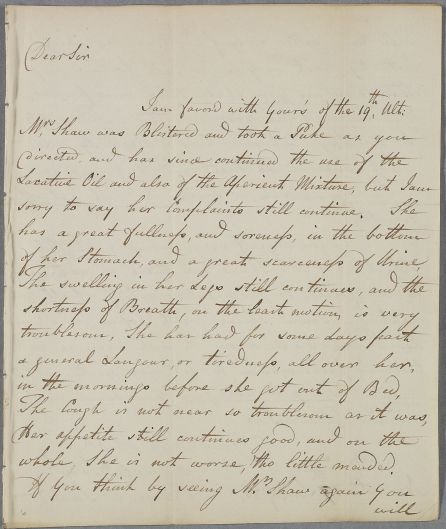 Dear Sir
I am favord with Your's of the 19th Ulti.
Mrs Shaw was Blistered and took a Puke as you
directed, and has since continued the use of the
Laxative Oil and also of the Aperient Mixture, but I am
sorry to say her Complaints still continue. She
has a great fullness, and soreness, in the bottom
of her Stomach, and a great scarceness of Urine,
The swelling in her Legs still continues, and the
shortness of Breath, on the least motion, is very
troublesom, She has had for some days past
a general Langour, or tiredness, all over her,
in the mornings before she got out of Bed,
The Cough is not near so troublesom as it was,
Her appetite still continues good, and on the
whole, She is not worse, tho little mended.
If you think by seeing Mrs Shaw again You
will